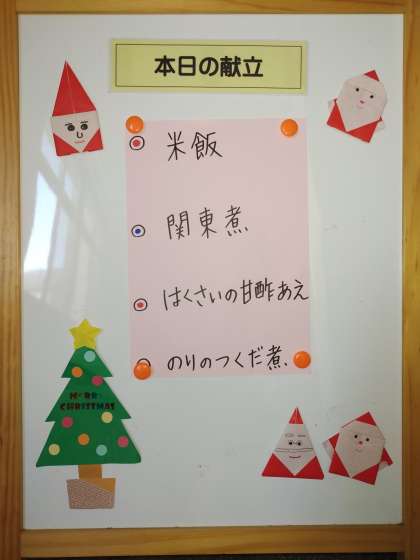 本日の献立
米飯
関東煮
はくさいの甘酢あえ
のりのつくだ煮
MERRY
CHRISTMAS